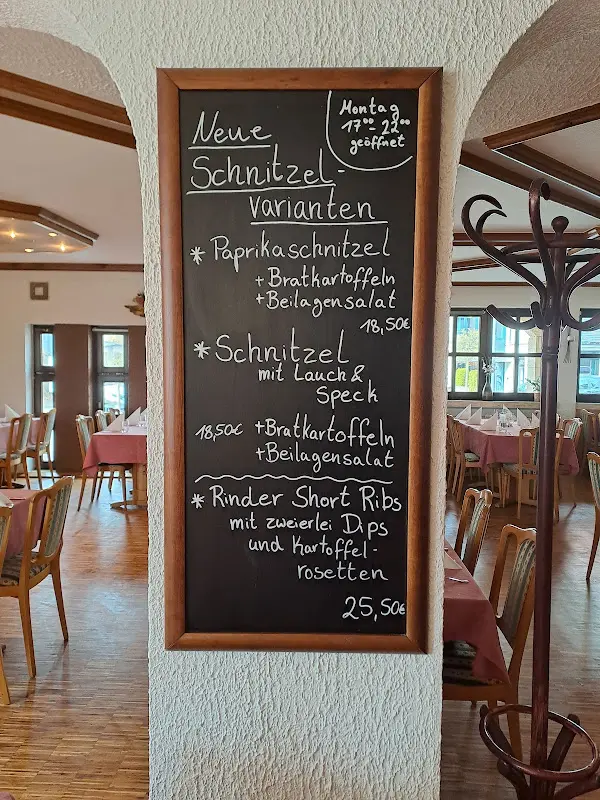 Montag
17⁰⁰ - 22⁰⁰
geöffnet
Neue
Schnitzel-
varianten
* Paprikaschnitzel
+ Bratkartoffeln
+ Beilagensalat
18,50€
* Schnitzel
mit Lauch &
Speck
18,50€ + Bratkartoffeln
+ Beilagensalat
* Rinder Short Ribs
mit zweierlei Dips
und Kartoffel-
rosetten
25,50€